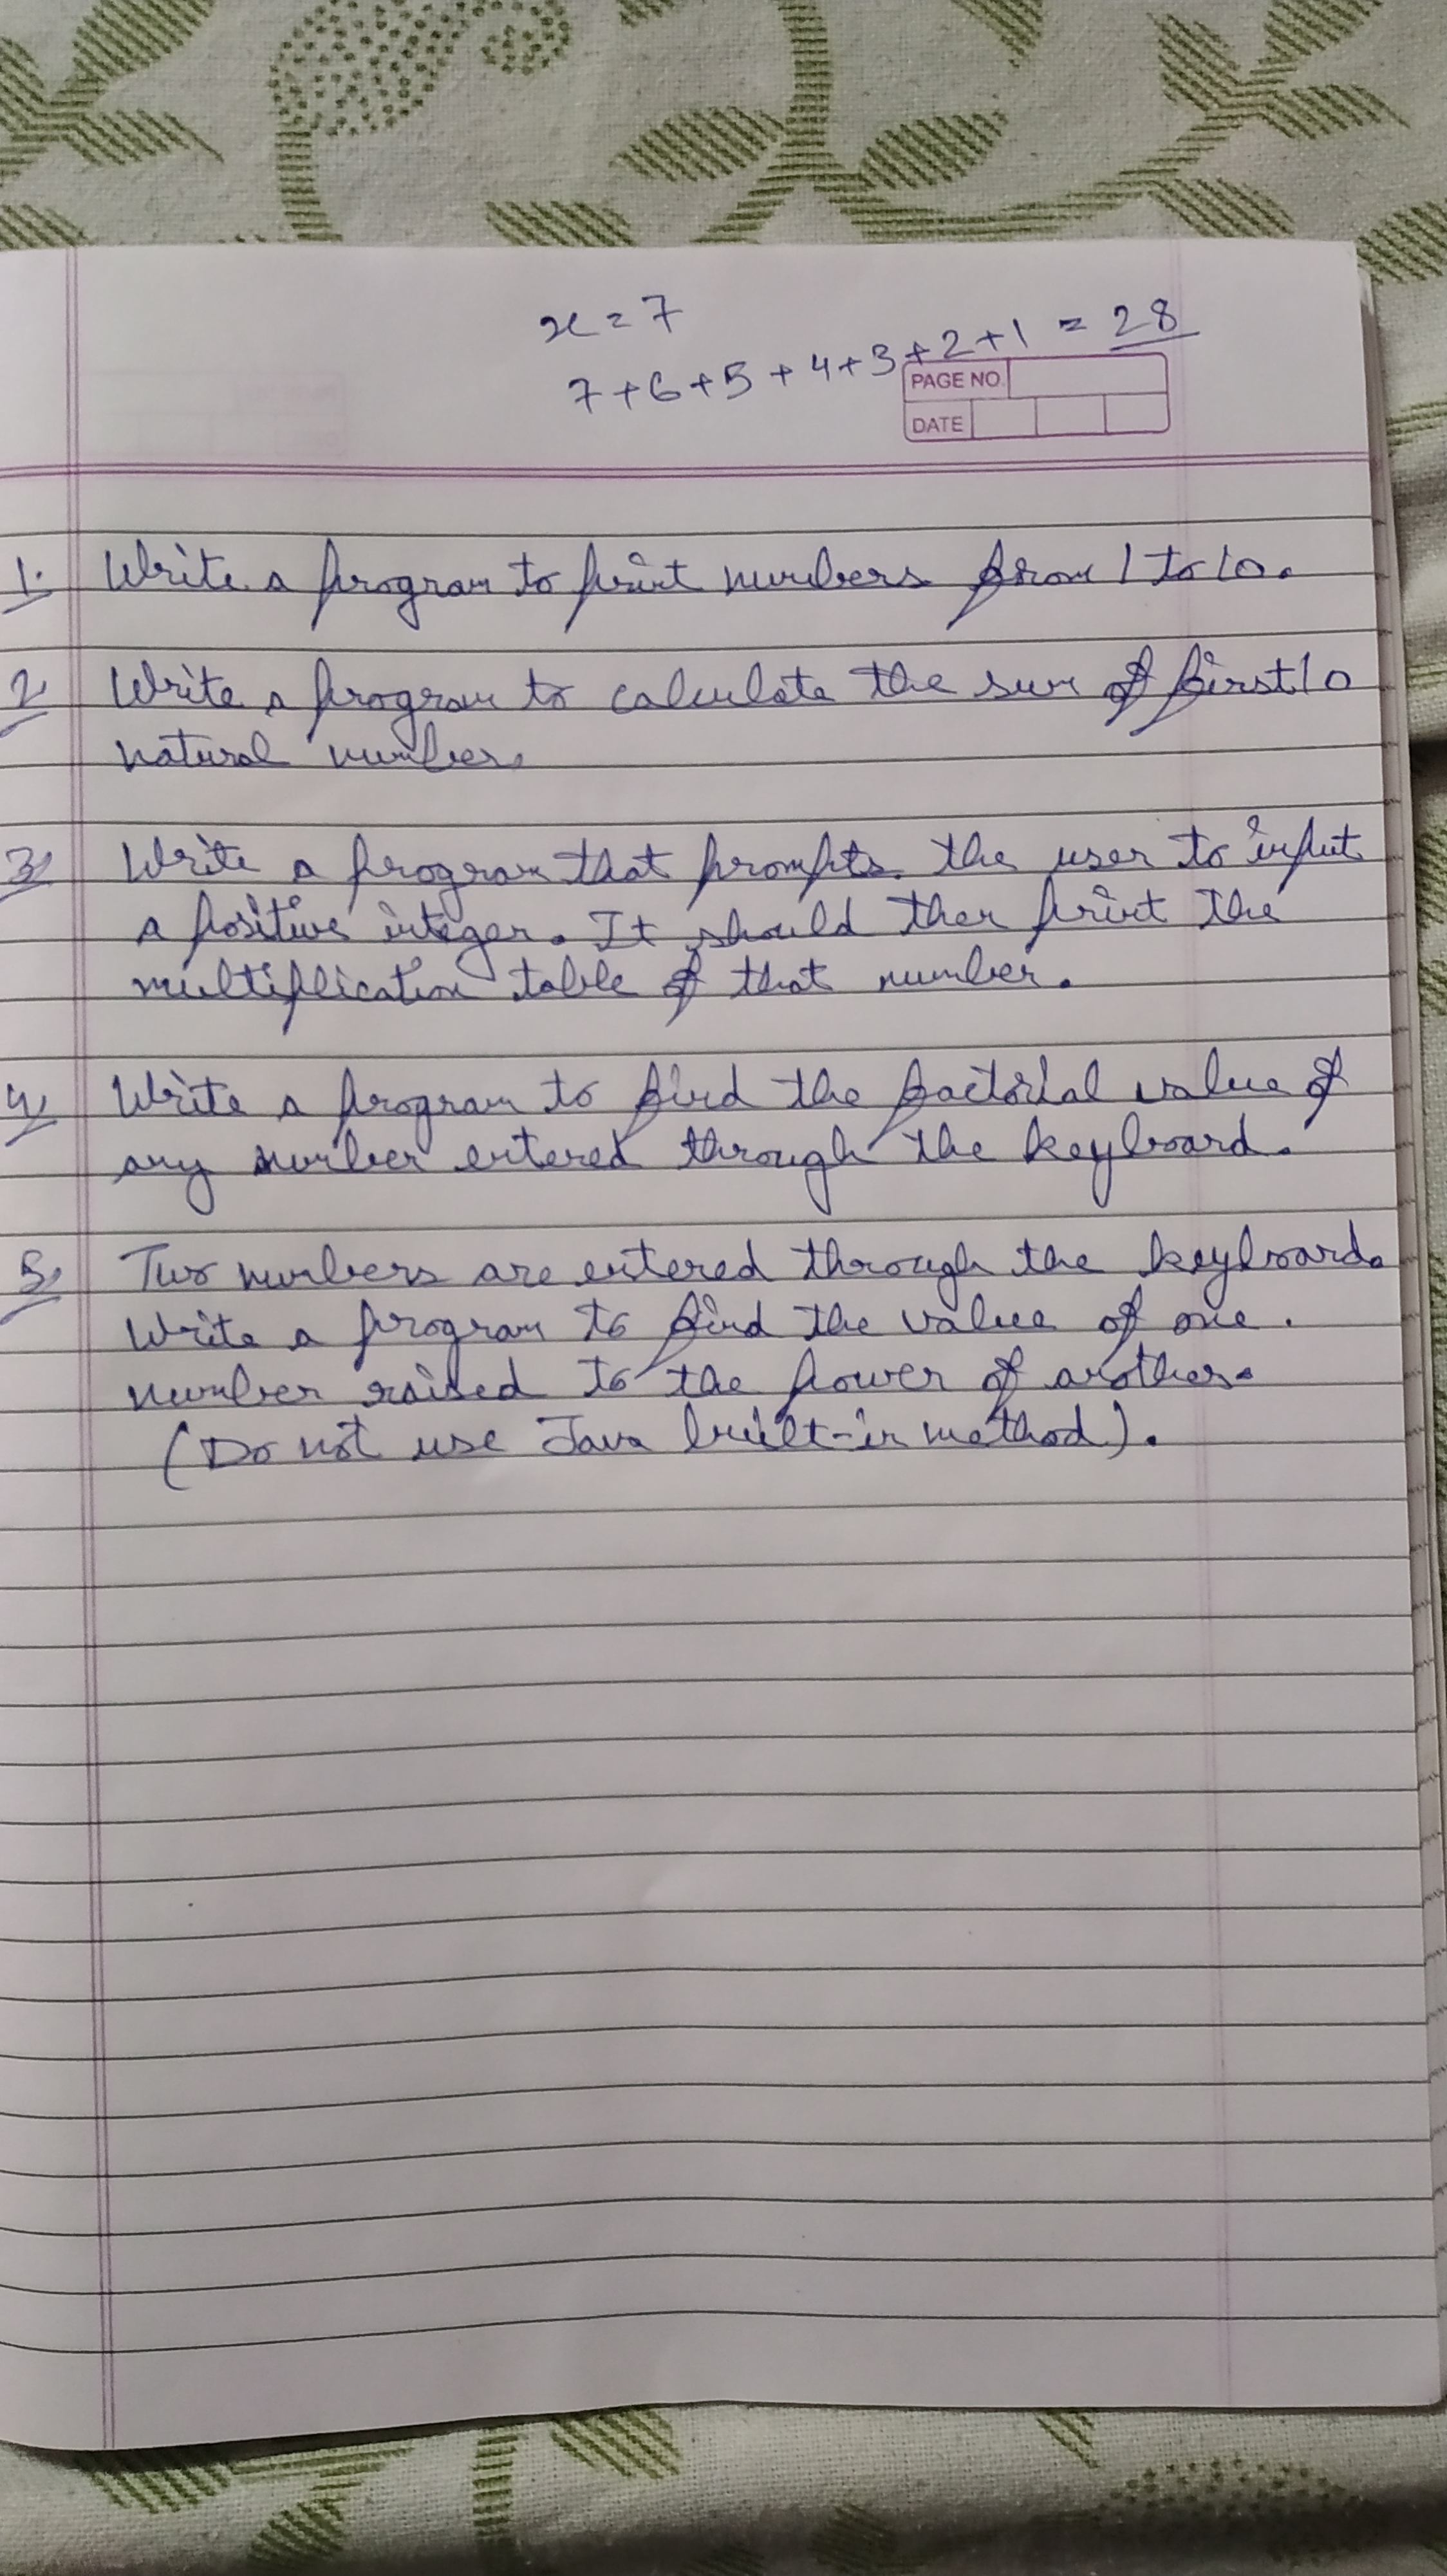 x = 7
7+6+5+4+3+2+1 = 28
PAGE NO.
DATE
1. Write a program to print numbers from 1 to 10.
2 Write a program to calculate the sum of first 10
natural number.
3 Write a program that prompts the user to input
a positive integer. It should then print the
multiplication table of that number.
4 Write a program to find the factorial value of
any number entered through the keyboard.
5 Two numbers are entered through the keyboard.
Write a program to find the value of one.
number raised to the power of another.
(Do not use Java built-in method).